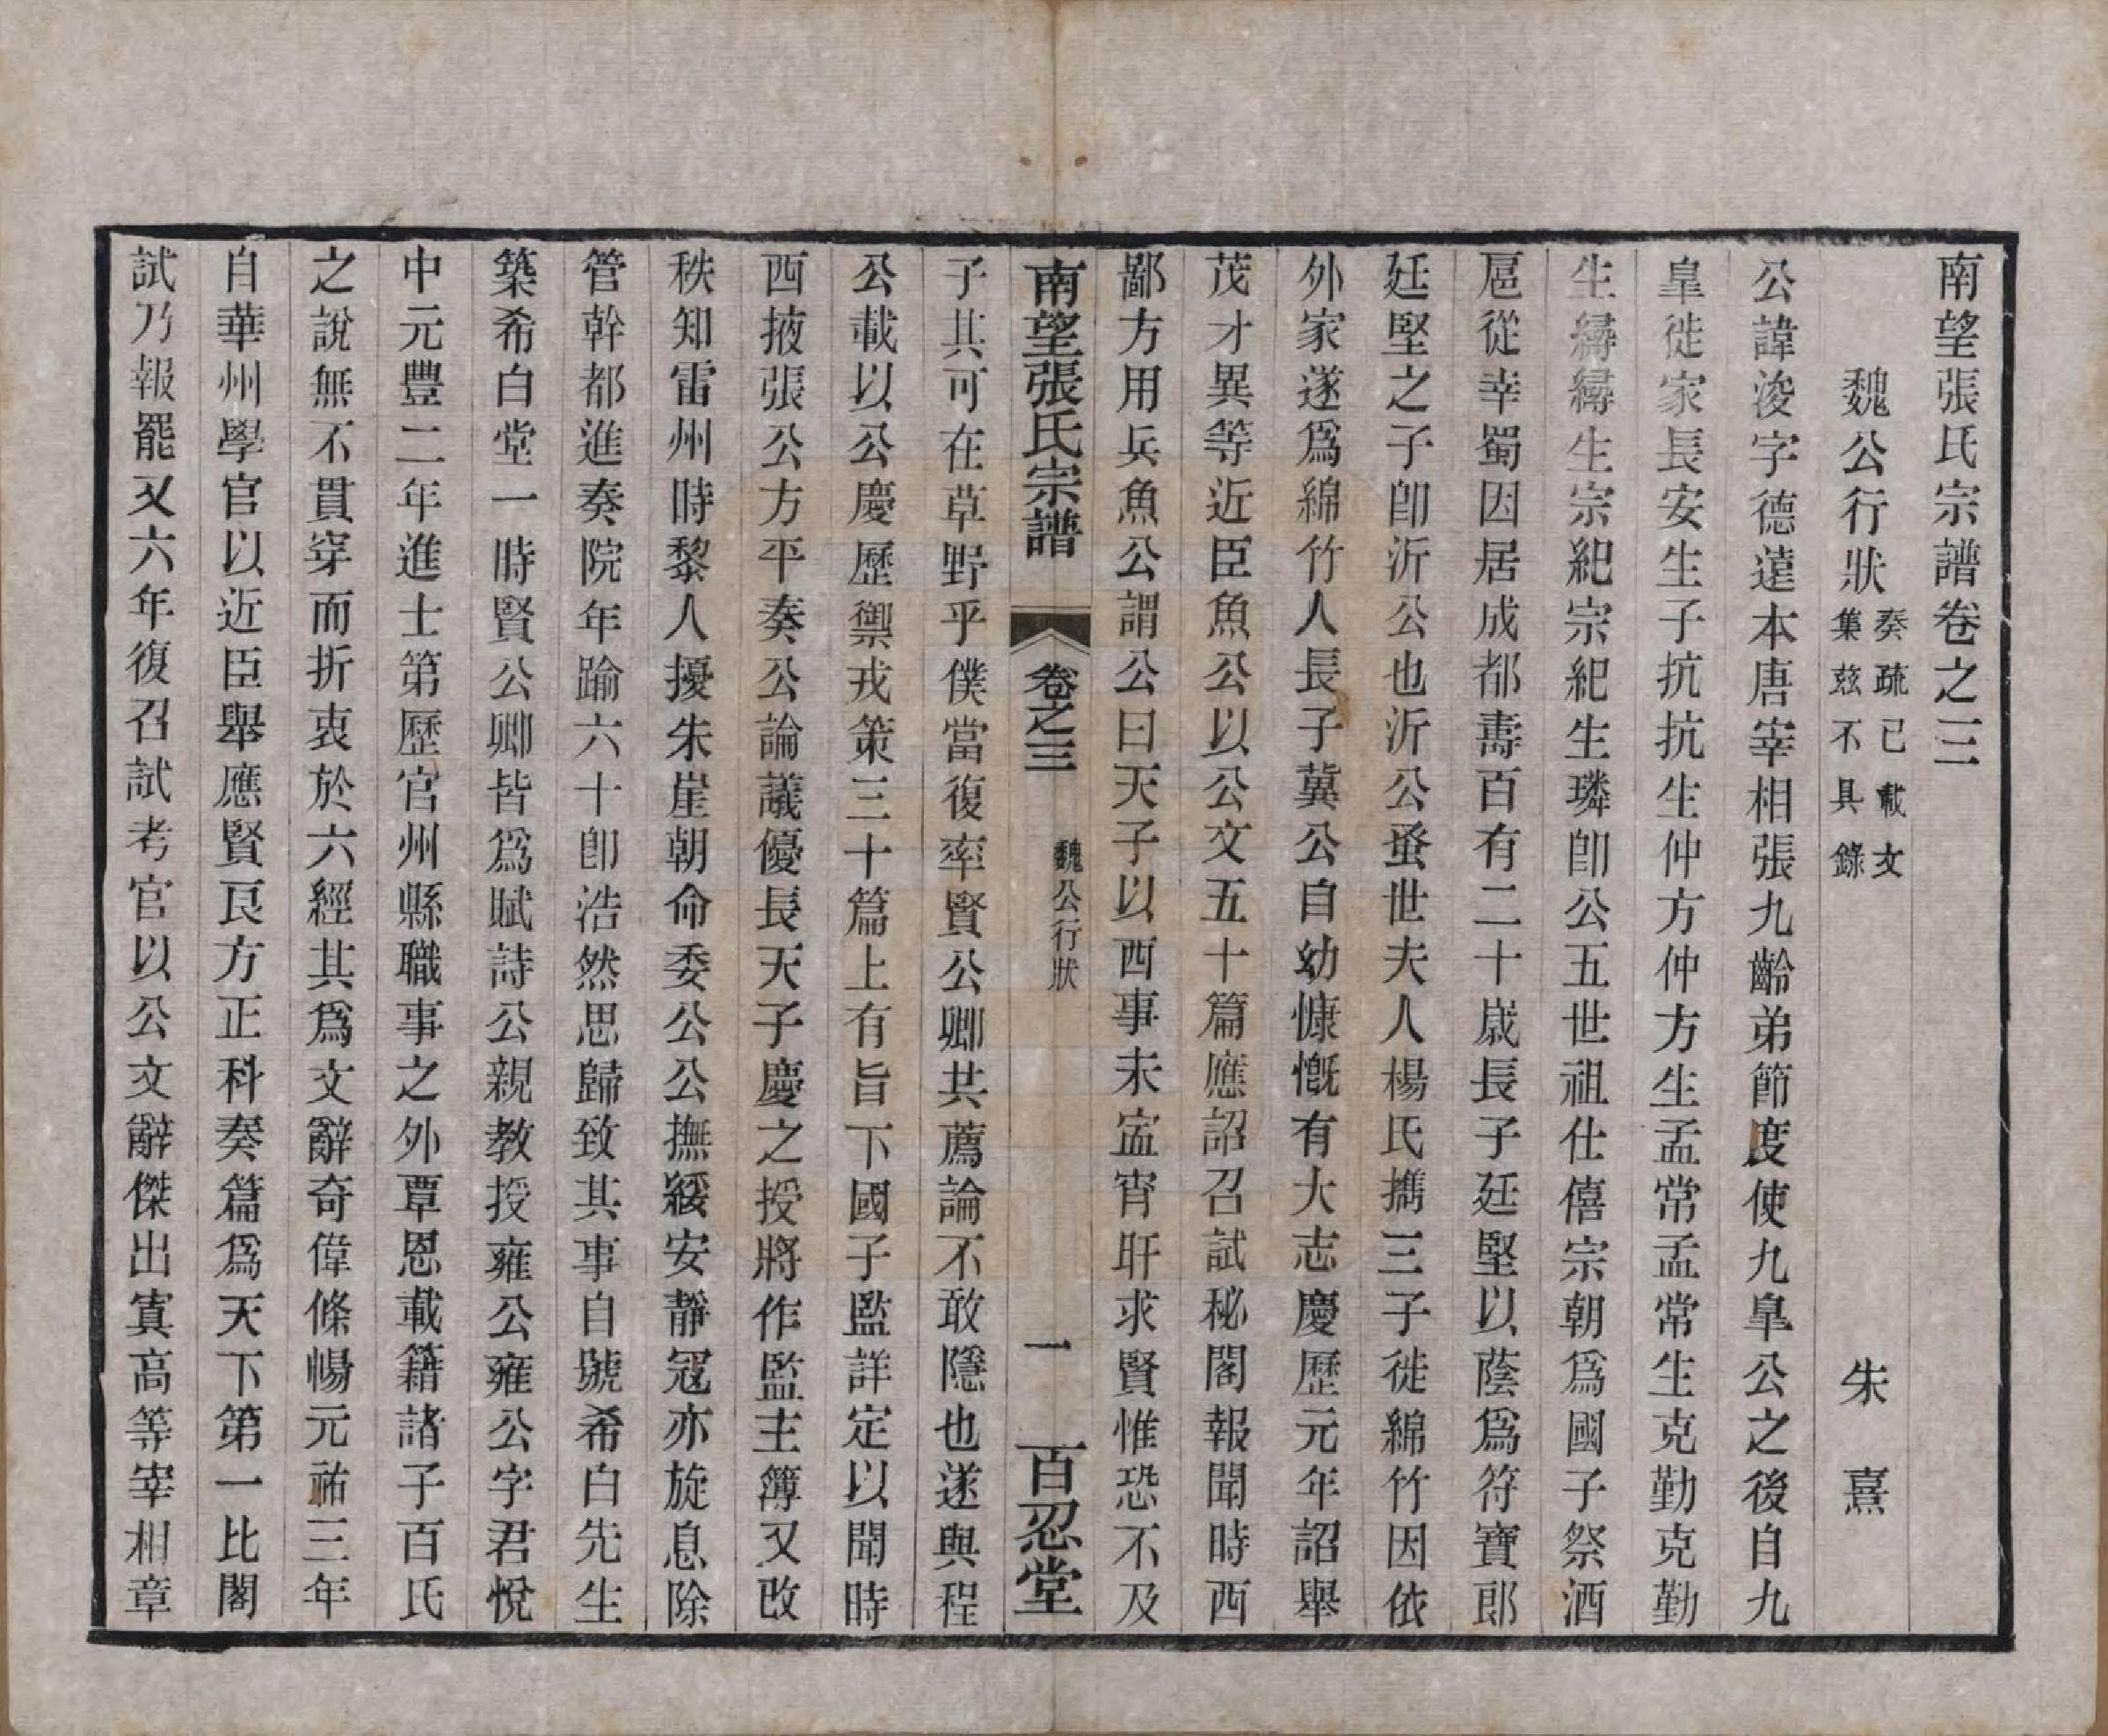 南望張氏宗譜卷之三
魏公行狀 奏疏已載文 集茲不具錄 朱熹
公諱浚字德遠本唐宰相張九齡弟節度使九臯公之後自九
臯徙家長安生子抗抗生仲方仲方生孟常孟常生克勤克勤
生縟縟生宗紀宗紀生璘卽公五世祖仕僖宗朝爲國子祭酒
扈從幸蜀因居成都壽百有二十歲長子廷堅以蔭爲符寶郎
廷堅之子卽沂公也沂公蚤世夫人楊氏攜三子徙綿竹因依
外家遂爲綿竹人長子冀公自幼慷慨有大志慶歷元年詔舉
茂才異等近臣魚公以公文五十篇應詔召試秘閣報聞時西
鄙方用兵魚公謂公曰天子以西事未寍宵旰求賢惟恐不及
南望張氏宗譜 卷之三 魏公行狀 一 百忍堂
子其可在草野乎僕當復率賢公卿共薦論不敢隱也遂與程
公載以公慶歷禦戎策三十篇上有旨下國子監詳定以聞時
西掖張公方平奏公論議優長天子慶之授將作監主簿又改
秩知雷州時黎人擾朱崖朝命委公公撫綏安靜寇亦旋息除
管幹都進奏院年踰六十卽浩然思歸致其事自號希白先生
築希白堂一時賢公卿皆爲賦詩公親教授雍公雍公字君悅
中元豐二年進士第歷官州縣職事之外覃恩載籍諸子百氏
之說無不貫穿而折衷於六經其爲文辭奇偉條暢元祐三年
自華州學官以近臣舉應賢良方正科奏篇爲天下第一比閣
試乃報罷又六年復召試考官以公文辭傑出寘高等宰相章